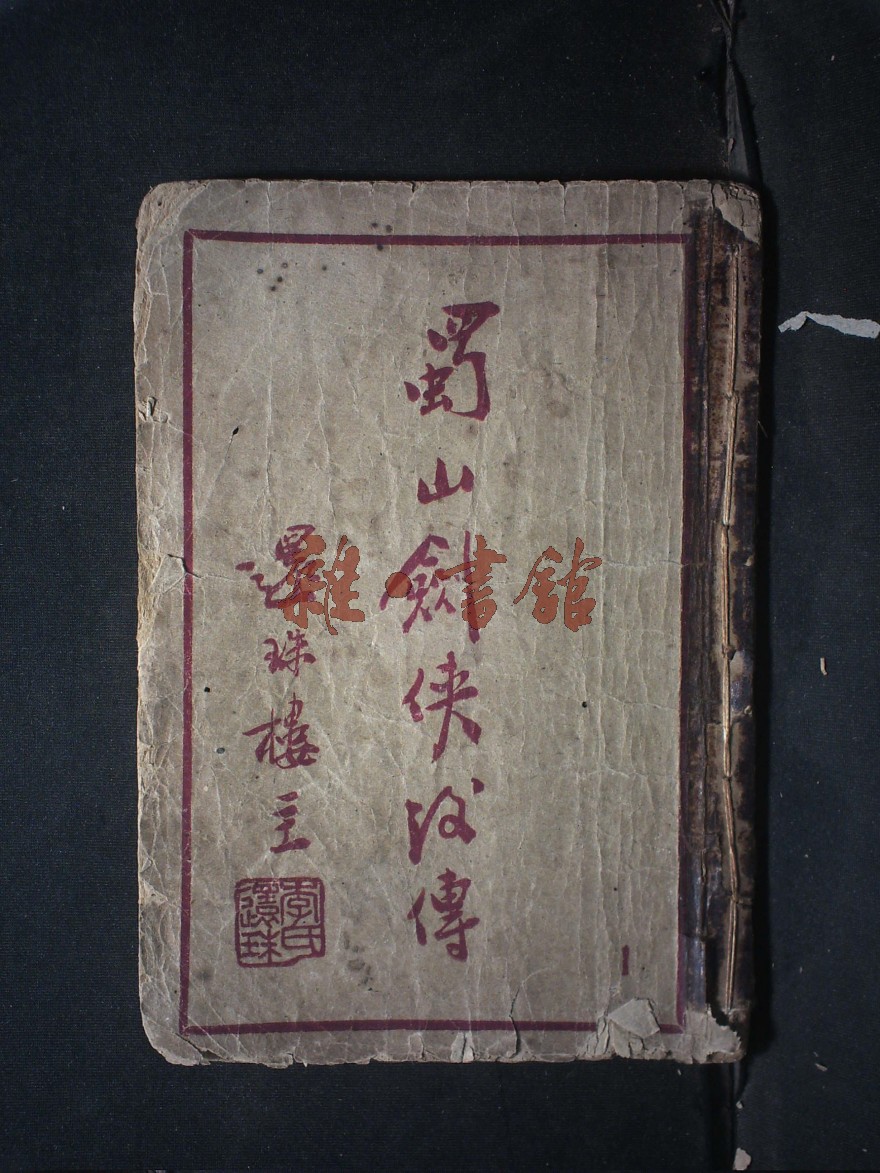 蜀山劍俠後傳
還珠樓主
李氏還珠
1
雜·書館